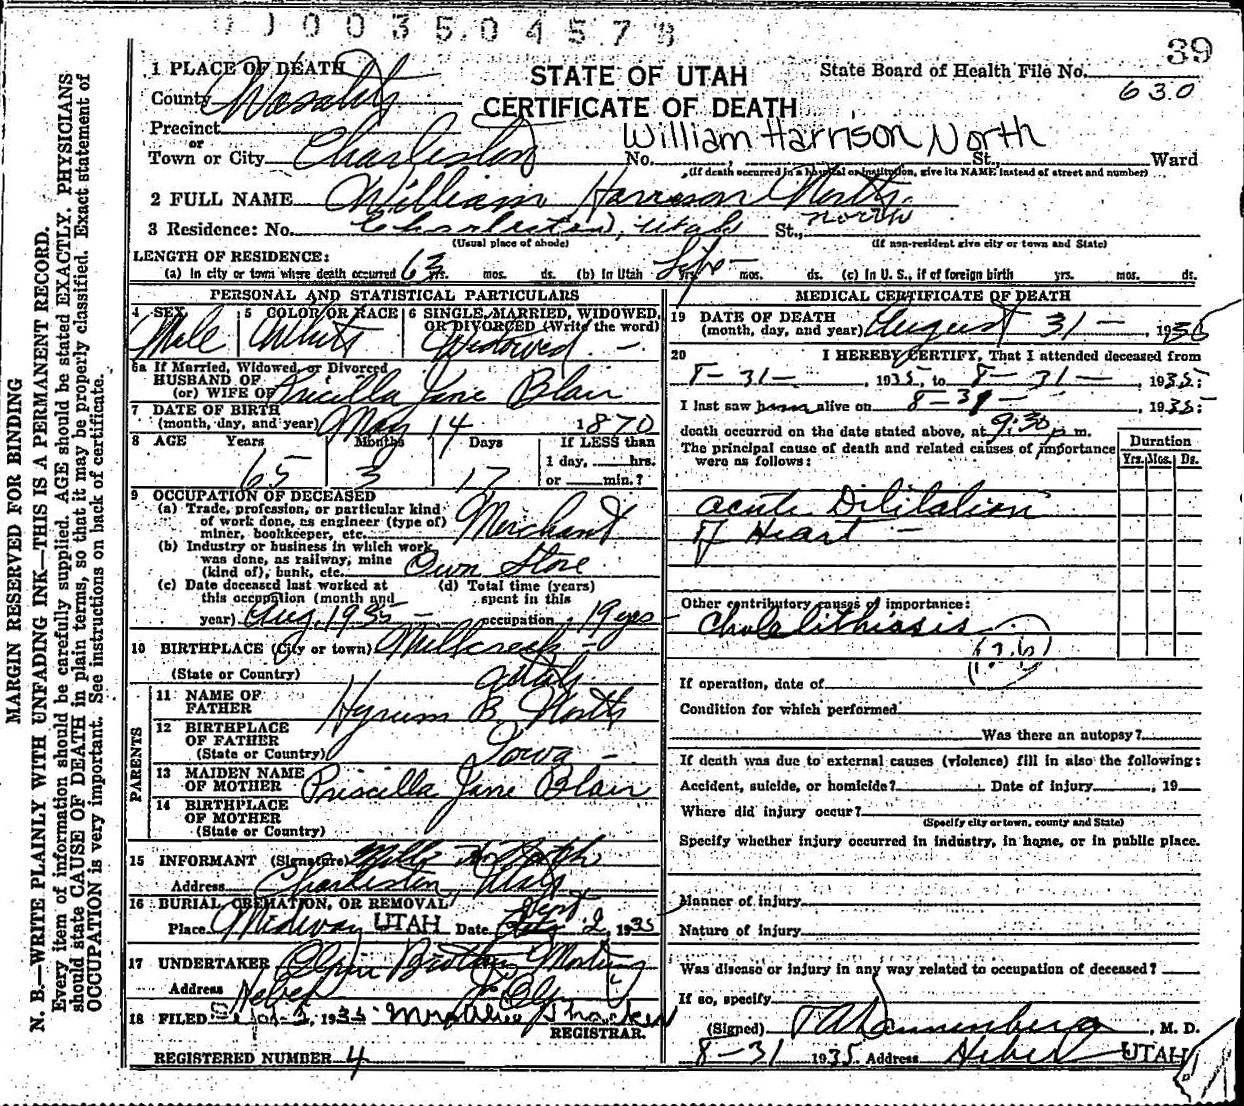 0 1 0 0 3 5 0 4 5 7 9
39
1 PLACE OF DEATH
STATE OF UTAH
State Board of Health File No.
County Wasatch
CERTIFICATE OF DEATH
630
Precinct
William Harrison North
or
Town or City Charleston No. , St., Ward
(If death occurred in a hospital or institution, give its NAME instead of street and number)
2 FULL NAME William Harrison North
north
3 Residence: No. Charleston, Utah St.,
(Usual place of abode) (If non-resident give city or town and State)
LENGTH OF RESIDENCE:
(a) In city or town where death occurred 63 yrs. mos. ds. (b) In Utah Life yrs. mos. ds. (c) In U. S., if of foreign birth yrs. mos. ds.
PERSONAL AND STATISTICAL PARTICULARS
4 SEX 5 COLOR OR RACE 6 SINGLE, MARRIED, WIDOWED, OR DIVORCED (Write the word)
Male White Widowed
6a If Married, Widowed, or Divorced
HUSBAND OF
(or) WIFE OF Pricilla Jane Blair
7 DATE OF BIRTH
(month, day, and year) May 14 1870
8 AGE Years Months Days If LESS than
1 day, hrs.
65 3 17 or min.?
9 OCCUPATION OF DECEASED
(a) Trade, profession, or particular kind
of work done, as engineer (type of)
miner, bookkeeper, etc. Merchant
(b) Industry or business in which work
was done, as railway, mine
(kind of), bank, etc. Own Store
(c) Date deceased last worked at (d) Total time (years)
this occupation (month and spent in this
year) Aug. 1935 occupation 19 yrs
10 BIRTHPLACE (City or town) Millcreek
(State or Country) Utah
PARENTS
11 NAME OF
FATHER Hyrum B. North
12 BIRTHPLACE
OF FATHER
(State or Country) Iowa
13 MAIDEN NAME
OF MOTHER Priscilla Jane Blair
14 BIRTHPLACE
OF MOTHER
(State or Country)
15 INFORMANT (Signature) North
Address Charleston, Utah
16 BURIAL, CREMATION, OR REMOVAL Sept
Place Midway UTAH Date 2, 1935
17 UNDERTAKER Olpin Brothers Mortuary
Address Heber
18 FILED , 1935 Mrs
REGISTRAR.
REGISTERED NUMBER 4
MEDICAL CERTIFICATE OF DEATH
19 DATE OF DEATH
(month, day, and year) August 31 - , 1935
20 I HEREBY CERTIFY, That I attended deceased from
8-31- , 1935, to 8-31- , 1935;
I last saw him alive on 8-31- , 1935;
death occurred on the date stated above, at 9:30 p m.
The principal cause of death and related causes of importance
were as follows:
Duration
Yrs. Mos. Ds.
acute Dilitation
of Heart -
Other contributory causes of importance:
Cholelithiasis
If operation, date of
Condition for which performed
Was there an autopsy?
If death was due to external causes (violence) fill in also the following:
Accident, suicide, or homicide? Date of injury , 19
Where did injury occur?
(Specify city or town, county and State)
Specify whether injury occurred in industry, in home, or in public place.
Manner of injury
Nature of injury
Was disease or injury in any way related to occupation of deceased?
If so, specify
(Signed) , M. D.
8-31 1935 Address Heber UTAH
MARGIN RESERVED FOR BINDING
N. B.—WRITE PLAINLY WITH UNFADING INK—THIS IS A PERMANENT RECORD.
Every item of information should be carefully supplied. AGE should be stated EXACTLY. PHYSICIANS
should state CAUSE OF DEATH in plain terms, so that it may be properly classified. Exact statement of
OCCUPATION is very important. See instructions on back of certificate.